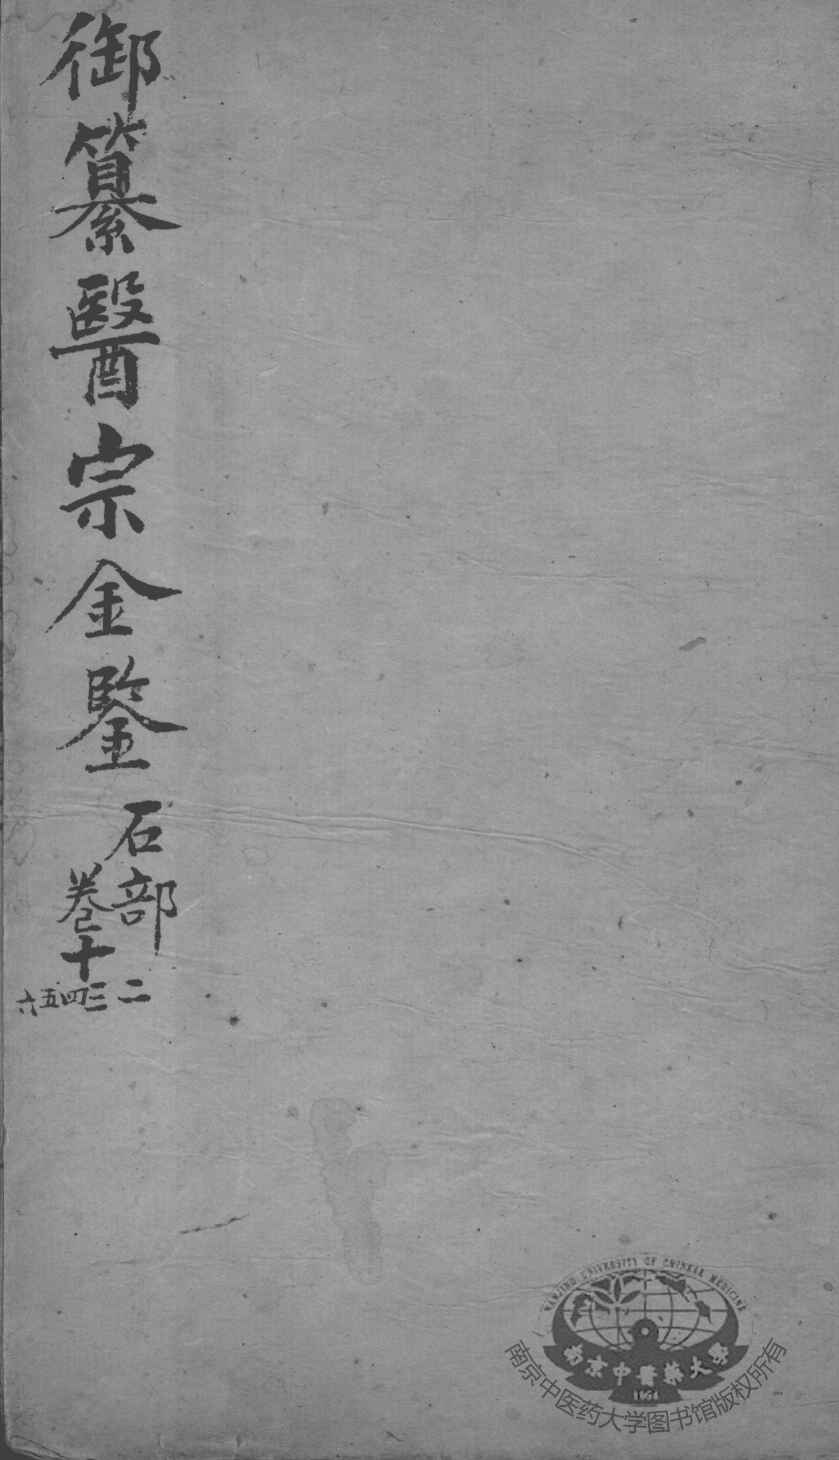 御纂醫宗金鑒
石部
卷十
二三四五六
NANJING UNIVERSITY OF CHINESE MEDICINE
南京中醫藥大學
南京中医药大学图书馆版权所有